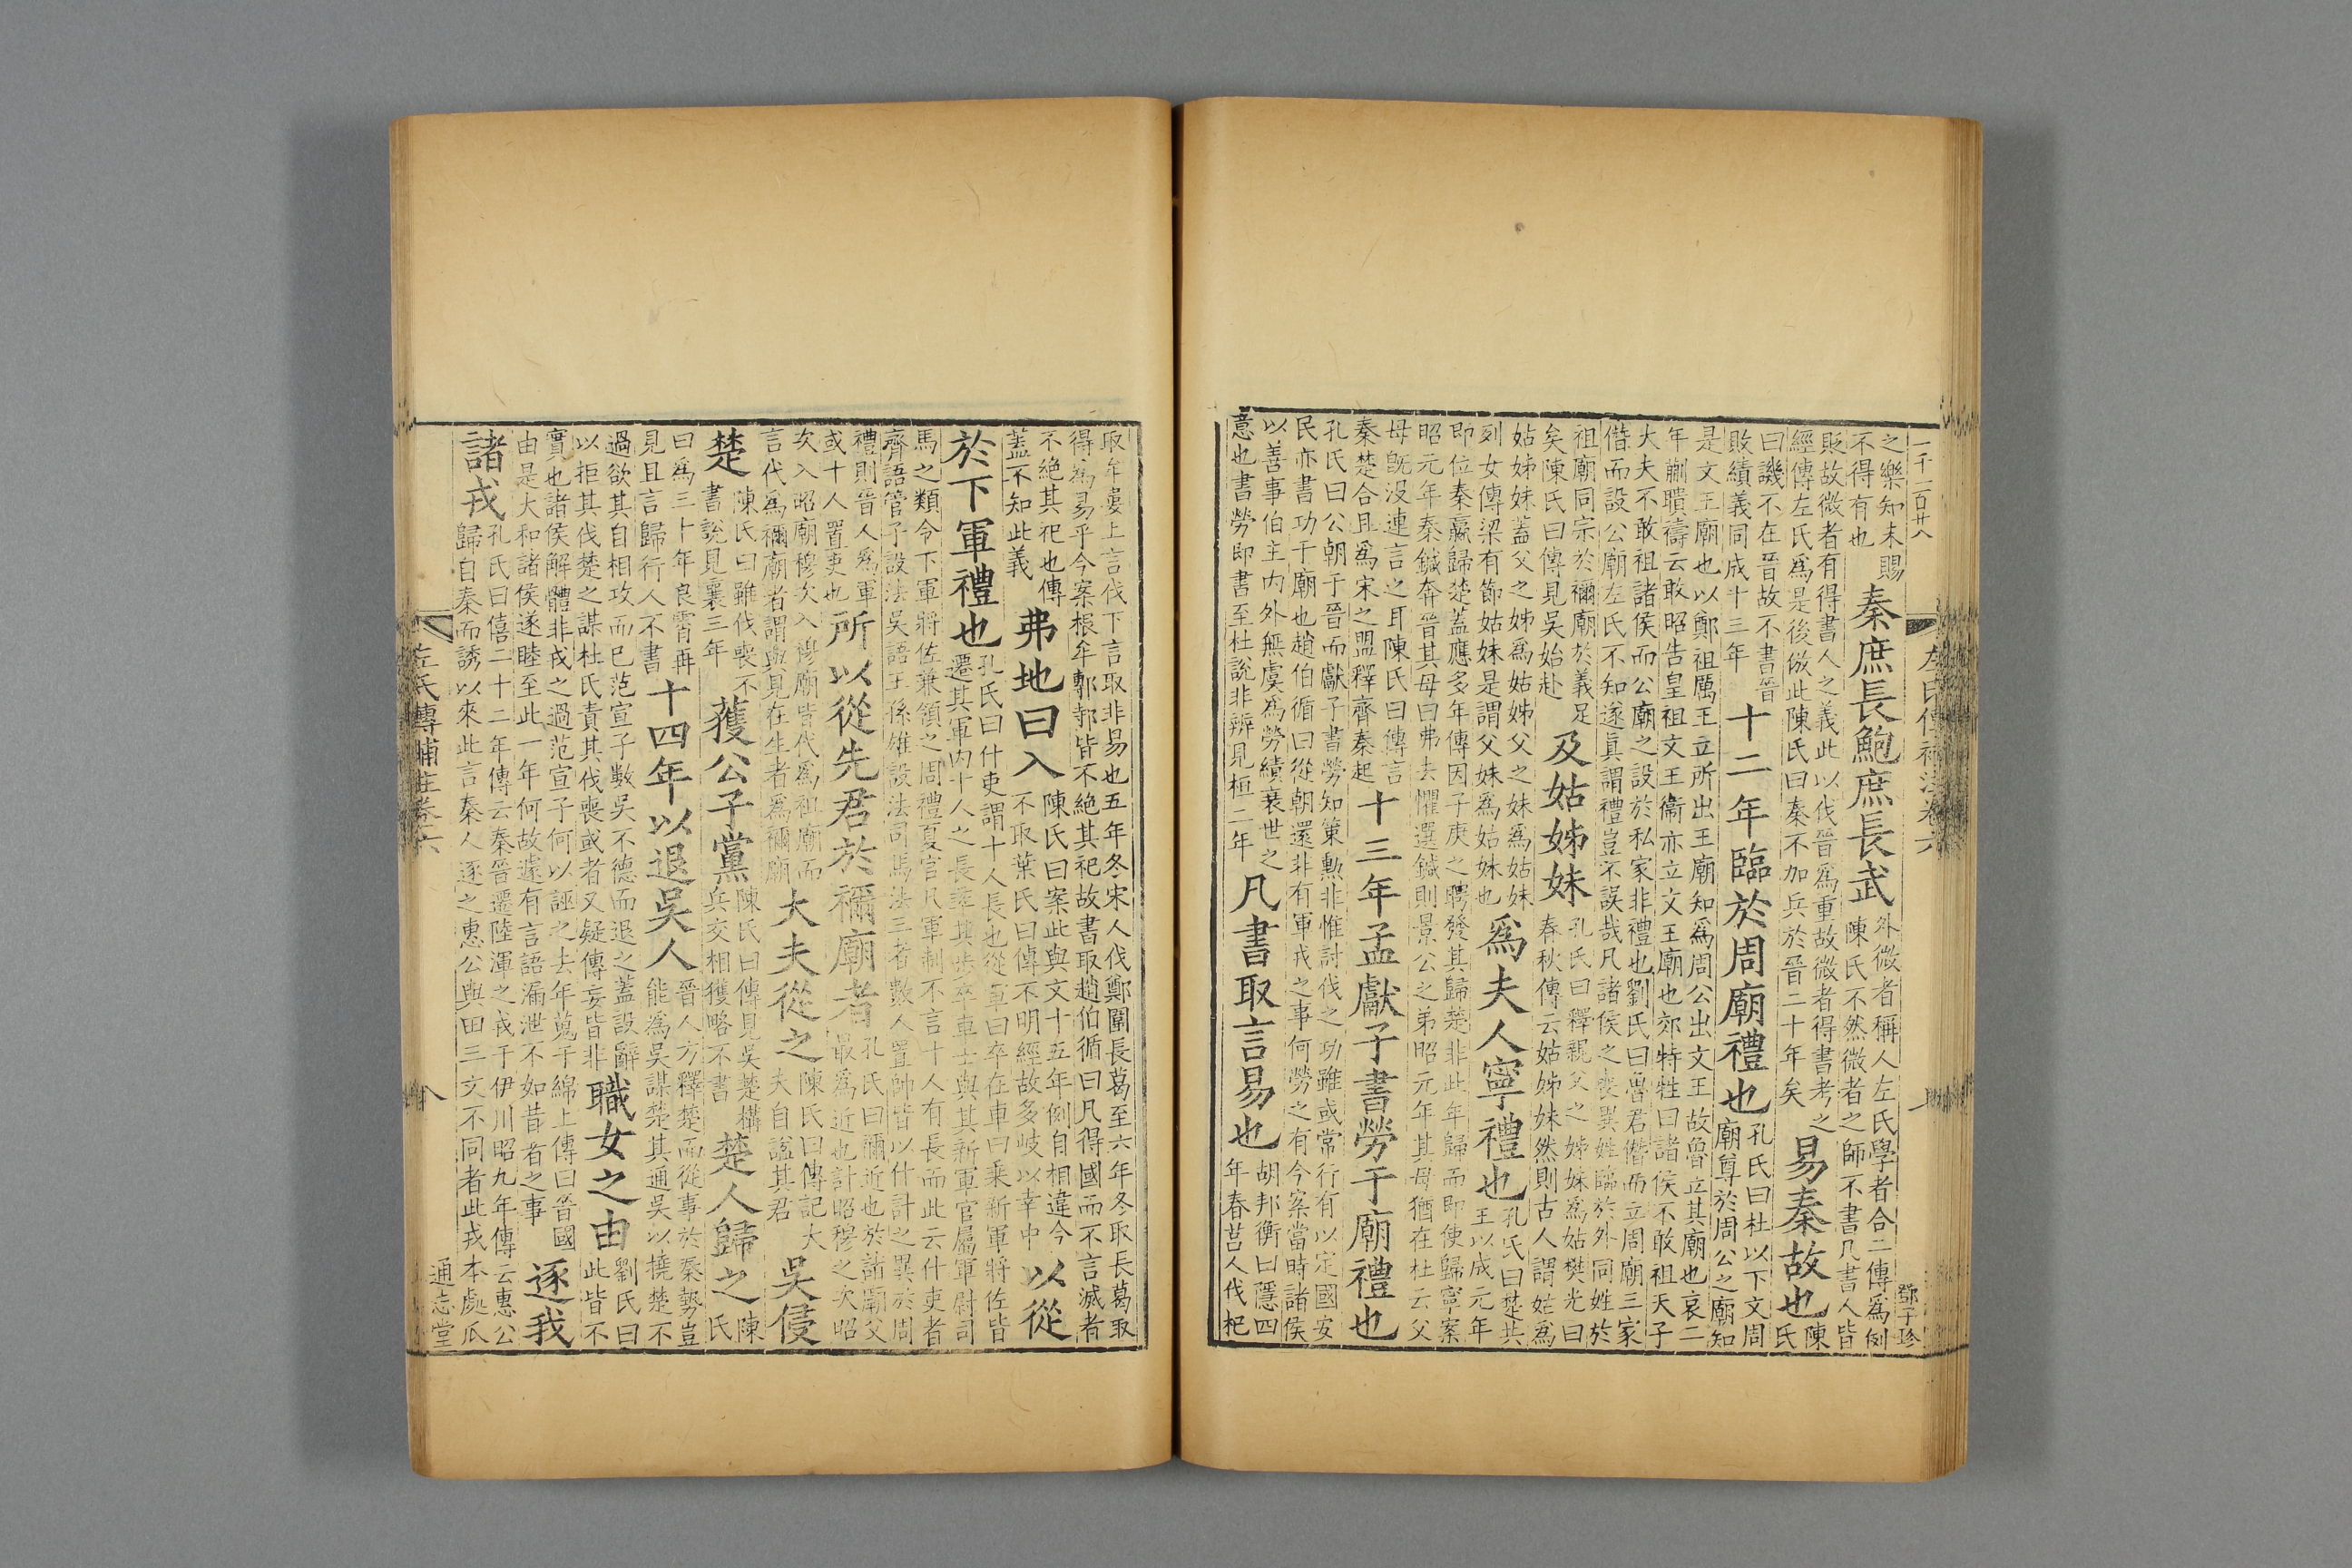 一千一百廿八 左氏傳補注卷六 鄧子珍
之樂知未賜不得有也 秦庶長鮑庶長武 外微者稱人左氏學者合二傳爲例陳氏不然微者之師不書凡書人皆
貶故微者有得書人之義此以伐晉爲重故微者得書考之經傳左氏爲是後倣此陳氏曰秦不加兵於晉二十年矣 易秦故也 陳氏
曰譏不在晉故不書晉敗績義同成十三年 十二年臨於周廟禮也 孔氏曰杜以下文周廟尊於周公之廟知
是文王廟也以鄭祖厲王立所出王廟知爲周公出文王故魯立其廟也哀二年蒯聵禱云敢昭告皇祖文王衞亦立文王廟也郊特牲曰諸侯不敢祖天子
大夫不敢祖諸侯而公廟之設於私家非禮也劉氏曰魯君僭而立周廟三家僭而設公廟左氏不知遂眞謂禮豈不誤哉凡諸侯之喪異姓臨於外同姓於
祖廟同宗於禰廟於義足矣陳氏曰傳見吴始赴 及姑姊妹 孔氏曰釋親父之姊妹爲姑樊光曰春秋傳云姑姊妹然則古人謂姑爲
姑姊妹蓋父之姊爲姑姊父之妹爲姑妹列女傳梁有節姑妹是謂父妹爲姑妹也 爲夫人寧禮也 孔氏曰楚共王以成元年
即位秦嬴歸楚蓋應多年傳因子庚之聘發其歸楚非此年歸而即使歸寧案昭元年秦鍼奔晉其母曰弗去懼選鍼則景公之弟昭元年其母猶在杜云父
母旣没連言之耳陳氏曰傳言秦楚合且爲宋之盟釋齊秦起 十三年孟獻子書勞于廟禮也
孔氏曰公朝于晉而獻子書勞知策勲非惟討伐之功雖或常行有以定國安民亦書功于廟也趙伯循曰從朝還非有軍戎之事何勞之有今案當時諸侯
以善事伯主内外無虞爲勞績衰世之意也書勞即書至杜說非辨見桓二年 凡書取言易也 胡邦衡曰隱四年春莒人伐杞
取牟婁上言伐下言取非易也五年冬宋人伐鄭圍長葛至六年冬取長葛取得爲易乎今案根牟鄟邿皆不絶其祀故書取趙伯循曰凡得國而不言滅者
不絶其祀也傳蓋不知此義 弗地曰入 陳氏曰案此與文十五年例自相違今不取葉氏曰傳不明經故多岐以幸中 以從
於下軍禮也 孔氏曰什吏謂十人長也從軍曰卒在車曰乘新軍將佐皆遷其軍内十人之長并其步卒車士與其新軍官屬軍尉司
馬之類令下軍將佐兼領之周禮夏官凡軍制不言十人有長而此云什吏者齊語管子設法吳語王孫雄設法司馬法三者數人置帥皆以什計之異於周
禮則晉人爲軍或十人置吏也 所以從先君於禰廟者 孔氏曰禰近也於諸廟父最爲近也計昭穆之次昭
次入昭廟穆次入穆廟皆代爲祖廟而言代爲禰廟者謂與見在生者爲禰廟 大夫從之 陳氏曰傳記大夫自謚其君 吴侵
楚 陳氏曰雖伐喪不書說見襄三年 獲公子黨 陳氏曰傳見吳楚構兵交相獲略不書 楚人歸之 陳氏
曰爲三十年良霄再見且言歸行人不書 十四年以退吳人 晉人方釋楚而從事於秦勢豈能爲吳謀楚其通吴以撓楚不
過欲其自相攻而已范宣子數吳不德而退之蓋設辭以拒其伐楚之謀杜氏責其伐喪或者又疑傳妄皆非 職女之由 劉氏曰此皆不
實也諸侯解體非戎之過范宣子何以誣之去年蒐于綿上傳曰晉國由是大和諸侯遂睦至此一年何故遽有言語漏泄不如昔者之事 逐我
諸戎 孔氏曰僖二十二年傳云秦晉遷陸渾之戎于伊川昭九年傳云惠公歸自秦而誘以來此言秦人逐之惠公與田三文不同者此戎本處瓜
左氏傳補注卷六 八 通志堂